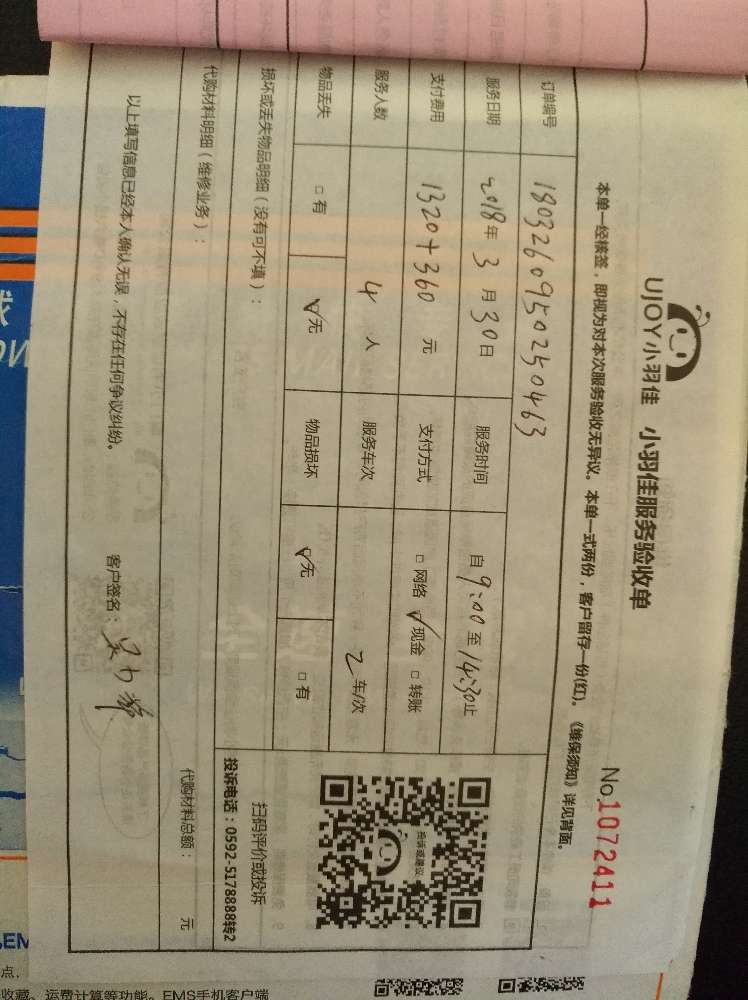 UJOY小羽佳 小羽佳服务验收单
No.1072411
本单一经核签，即视为对本次服务验收无异议。本单一式两份，客户留存一份(红)。《维保须知》详见背面。
订单编号 1803260950250463
服务日期 2018年3月30日 服务时间 自9:00至14:30止
支付费用 1320+360元 支付方式 □网络 ☑现金 □转账
服务人数 4人 服务车次 2车/次
物品丢失 □有 ☑无 物品损坏 ☑无 □有
损坏或丢失物品明细（没有可不填）：
投诉或建议
扫码评价或投诉
投诉电话：0592-5178888转2
代购材料明细（维修业务）：
代购材料总额： 元
以上填写信息已经本人确认无误，不存在任何争议纠纷。
客户签名：
点，
收藏、运费计算等功能。EMS手机客户端